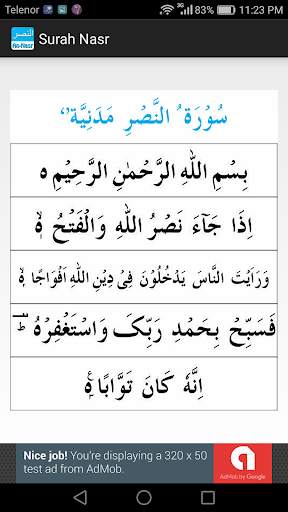 Telenor 3G 83% 11:23 PM
النصر
An-Nasr
Surah Nasr
سُوْرَةُ النَّصْرِ مَدَنِيَّة
بِسْمِ اللهِ الرَّحْمٰنِ الرَّحِيْمِ ه
اِذَا جَآءَ نَصْرُ اللهِ وَالْفَتْحُ ۙ
وَرَاَيْتَ النَّاسَ يَدْخُلُوْنَ فِىْ دِيْنِ اللهِ اَفْوَاجًا ۙ
فَسَبِّحْ بِحَمْدِ رَبِّكَ وَاسْتَغْفِرْهُ ؕ
اِنَّهٗ كَانَ تَوَّابًا
Nice job! You're displaying a 320 x 50
test ad from AdMob.
AdMob by Google